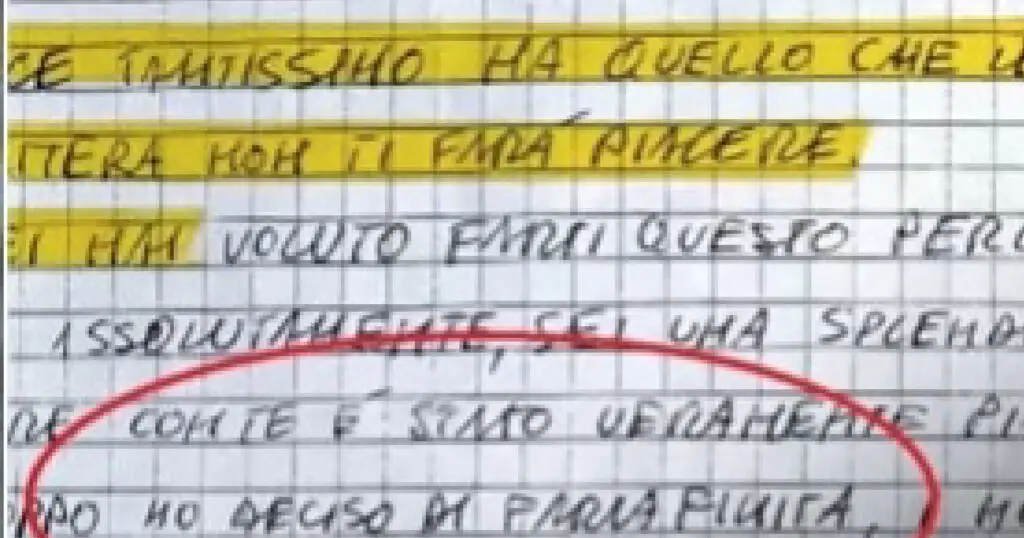 CE TANTISSIMO HA QUELLO CHE
TTERA NON TI FARÁ PIACERE.
EI HAI VOLUTO FARTI QUESTO PER
ASSOLUTAMENTE, SEI UNA SPLEND
RE CON TE É STATO VERAMENTE PI
OPPO HO DECISO DI FARLA FINITA, HO